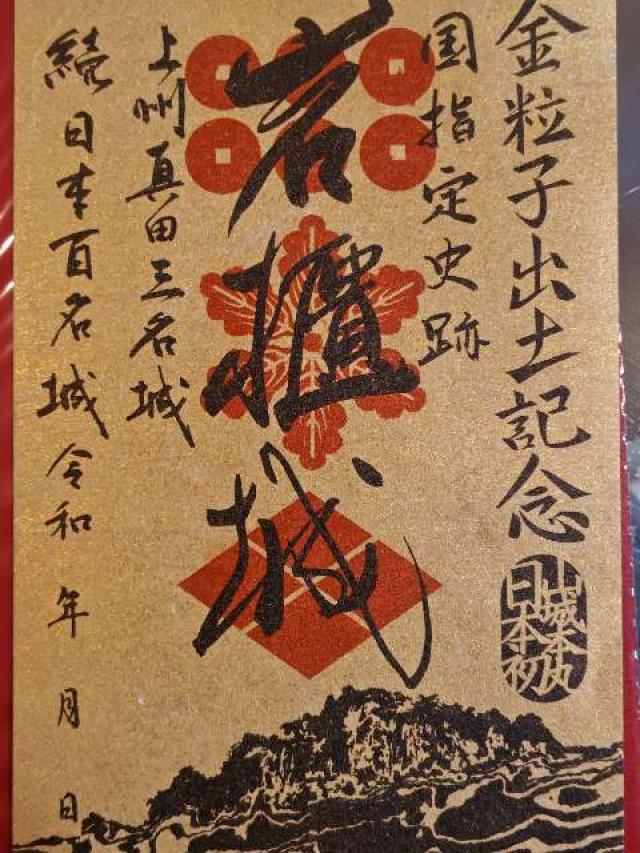 金粒子出土記念
山城本丸
日本初
国指定史跡
岩櫃城
上州真田三名城
続日本百名城 令和 年 月 日